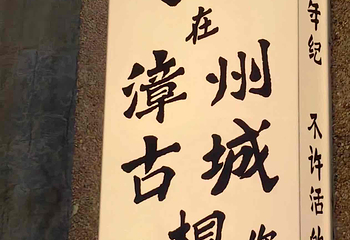 在
漳州
古城
想
年纪 不许活